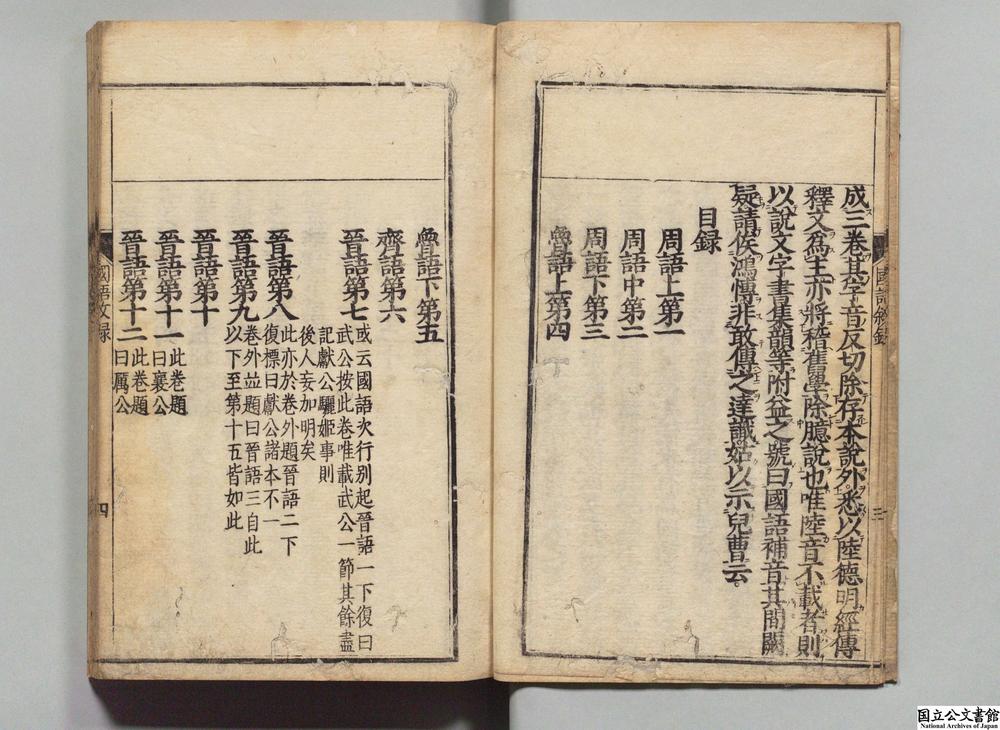 成三卷其字音反切除存本說外悉以陸德明經傳
釋文為主亦將稽舊學除臆說也唯陸音不載者則
以說文字書集韻等附益之號曰國語補音其間闕
疑請俟鴻愽非敢傳之達識姑以示兒曹云
目録
周語上第一
周語中第二
周語下第三
魯語上第四
三
魯語下第五
齊語第六
晉語第七
或云國語次行别起晉語一下復曰
武公按此卷唯載武公一節其餘盡
記獻公驪姬事則
後人妄加明矣
晉語第八
此亦於卷外題晉語二下
復標曰獻公諸本不一
晉語第九
卷外並題曰晉語三自此
以下至第十五皆如此
晉語第十
晉語第十一
此卷題
曰襄公
晉語第十二
此卷題
曰厲公
四
国立公文書館
National Archives of Japan